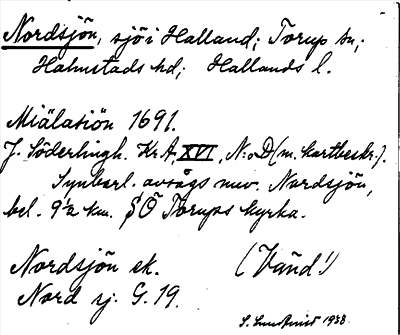 Nordsjön, sjö i Halland; Torup sn;
Halmstads hd; Hallands l.
Miälasiön 1691.
J. Söderlingh. Kr. A. XVI, N:o D (m. kartbeskr.).
Synbarl. avsågs nuv. Nordsjön,
bel. 9½ km. SÖ Torups kyrka.
Nordsjön ek. (Vañd!)
Nord sj. G. 19.
1938